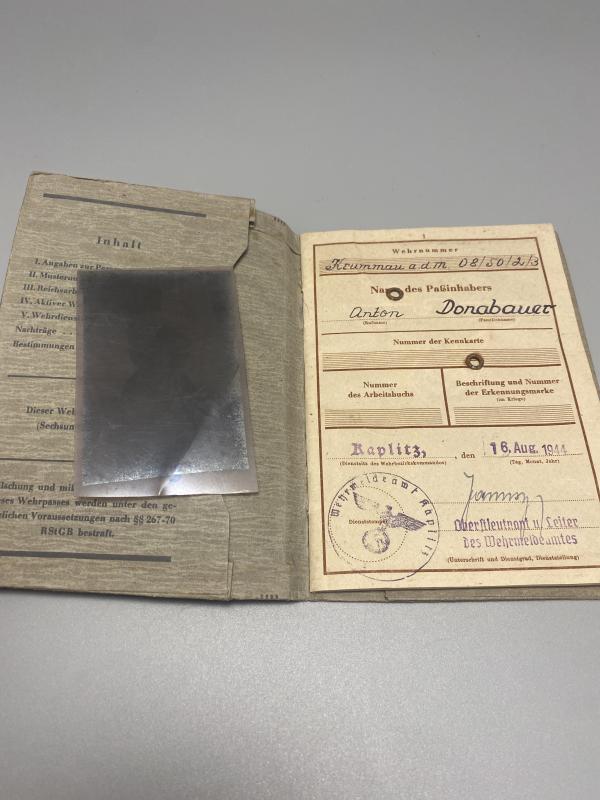 Inhalt
I. Angaben zur
II. Musterun
III. Reichsarb
IV. Aktiver W
V. Wehrdiens
Nachträge . .
Bestimmungen
Dieser Weh
(Sechsun
lschung und mi
eses Wehrpasses werden unter den ge-
lichen Voraussetzungen nach §§ 267-70
RStGB bestraft.
1
Wehrnummer
Krummau a.d.m. 08/50/2/3
des Paßinhabers
Anton Donabauer
(Rufname) (Familienname)
Nummer der Kennkarte
Nummer
des Arbeitsbuchs
Beschriftung und Nummer
der Erkennungsmarke
(im Kriege)
Kaplitz, , den 16. Aug. 1944
(Dienstsitz des Wehrbezirkskommandos) (Tag, Monat, Jahr)
Wehrmeldeamt Kaplitz
(Dienststempel)
Oberstleutnant u. Leiter
des Wehrmeldeamtes
(Unterschrift und Dienstgrad, Dienststellung)